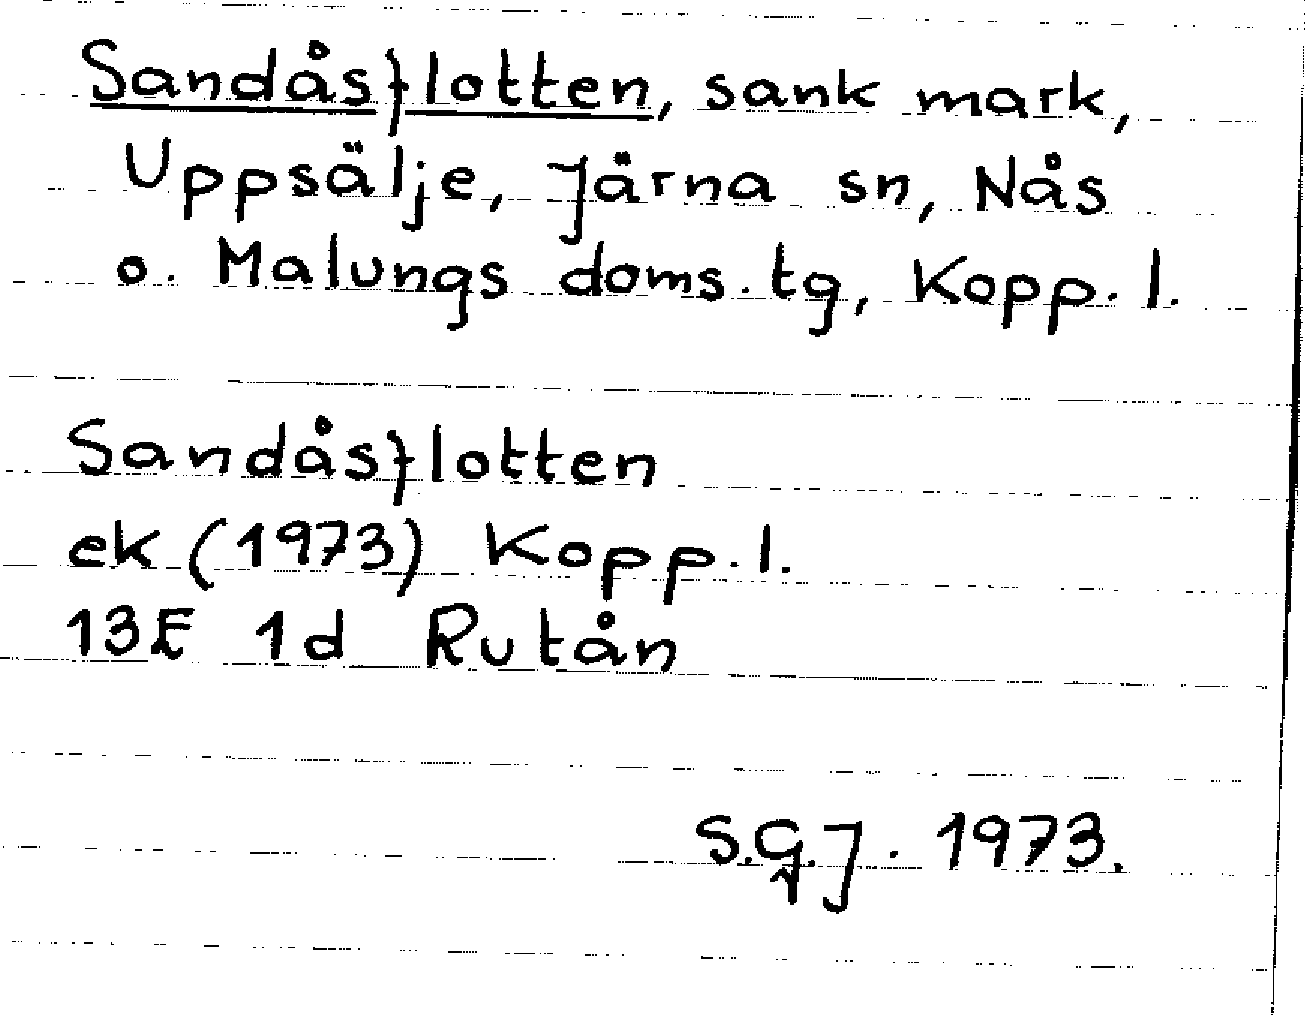 Sandåsflotten, sank mark,
Uppsälje, Järna sn, Nås
o. Malungs doms.tg, Kopp. l.
Sandåsflotten
ek (1973) Kopp. l.
13E 1d Rutån
S.G.J. 1973.